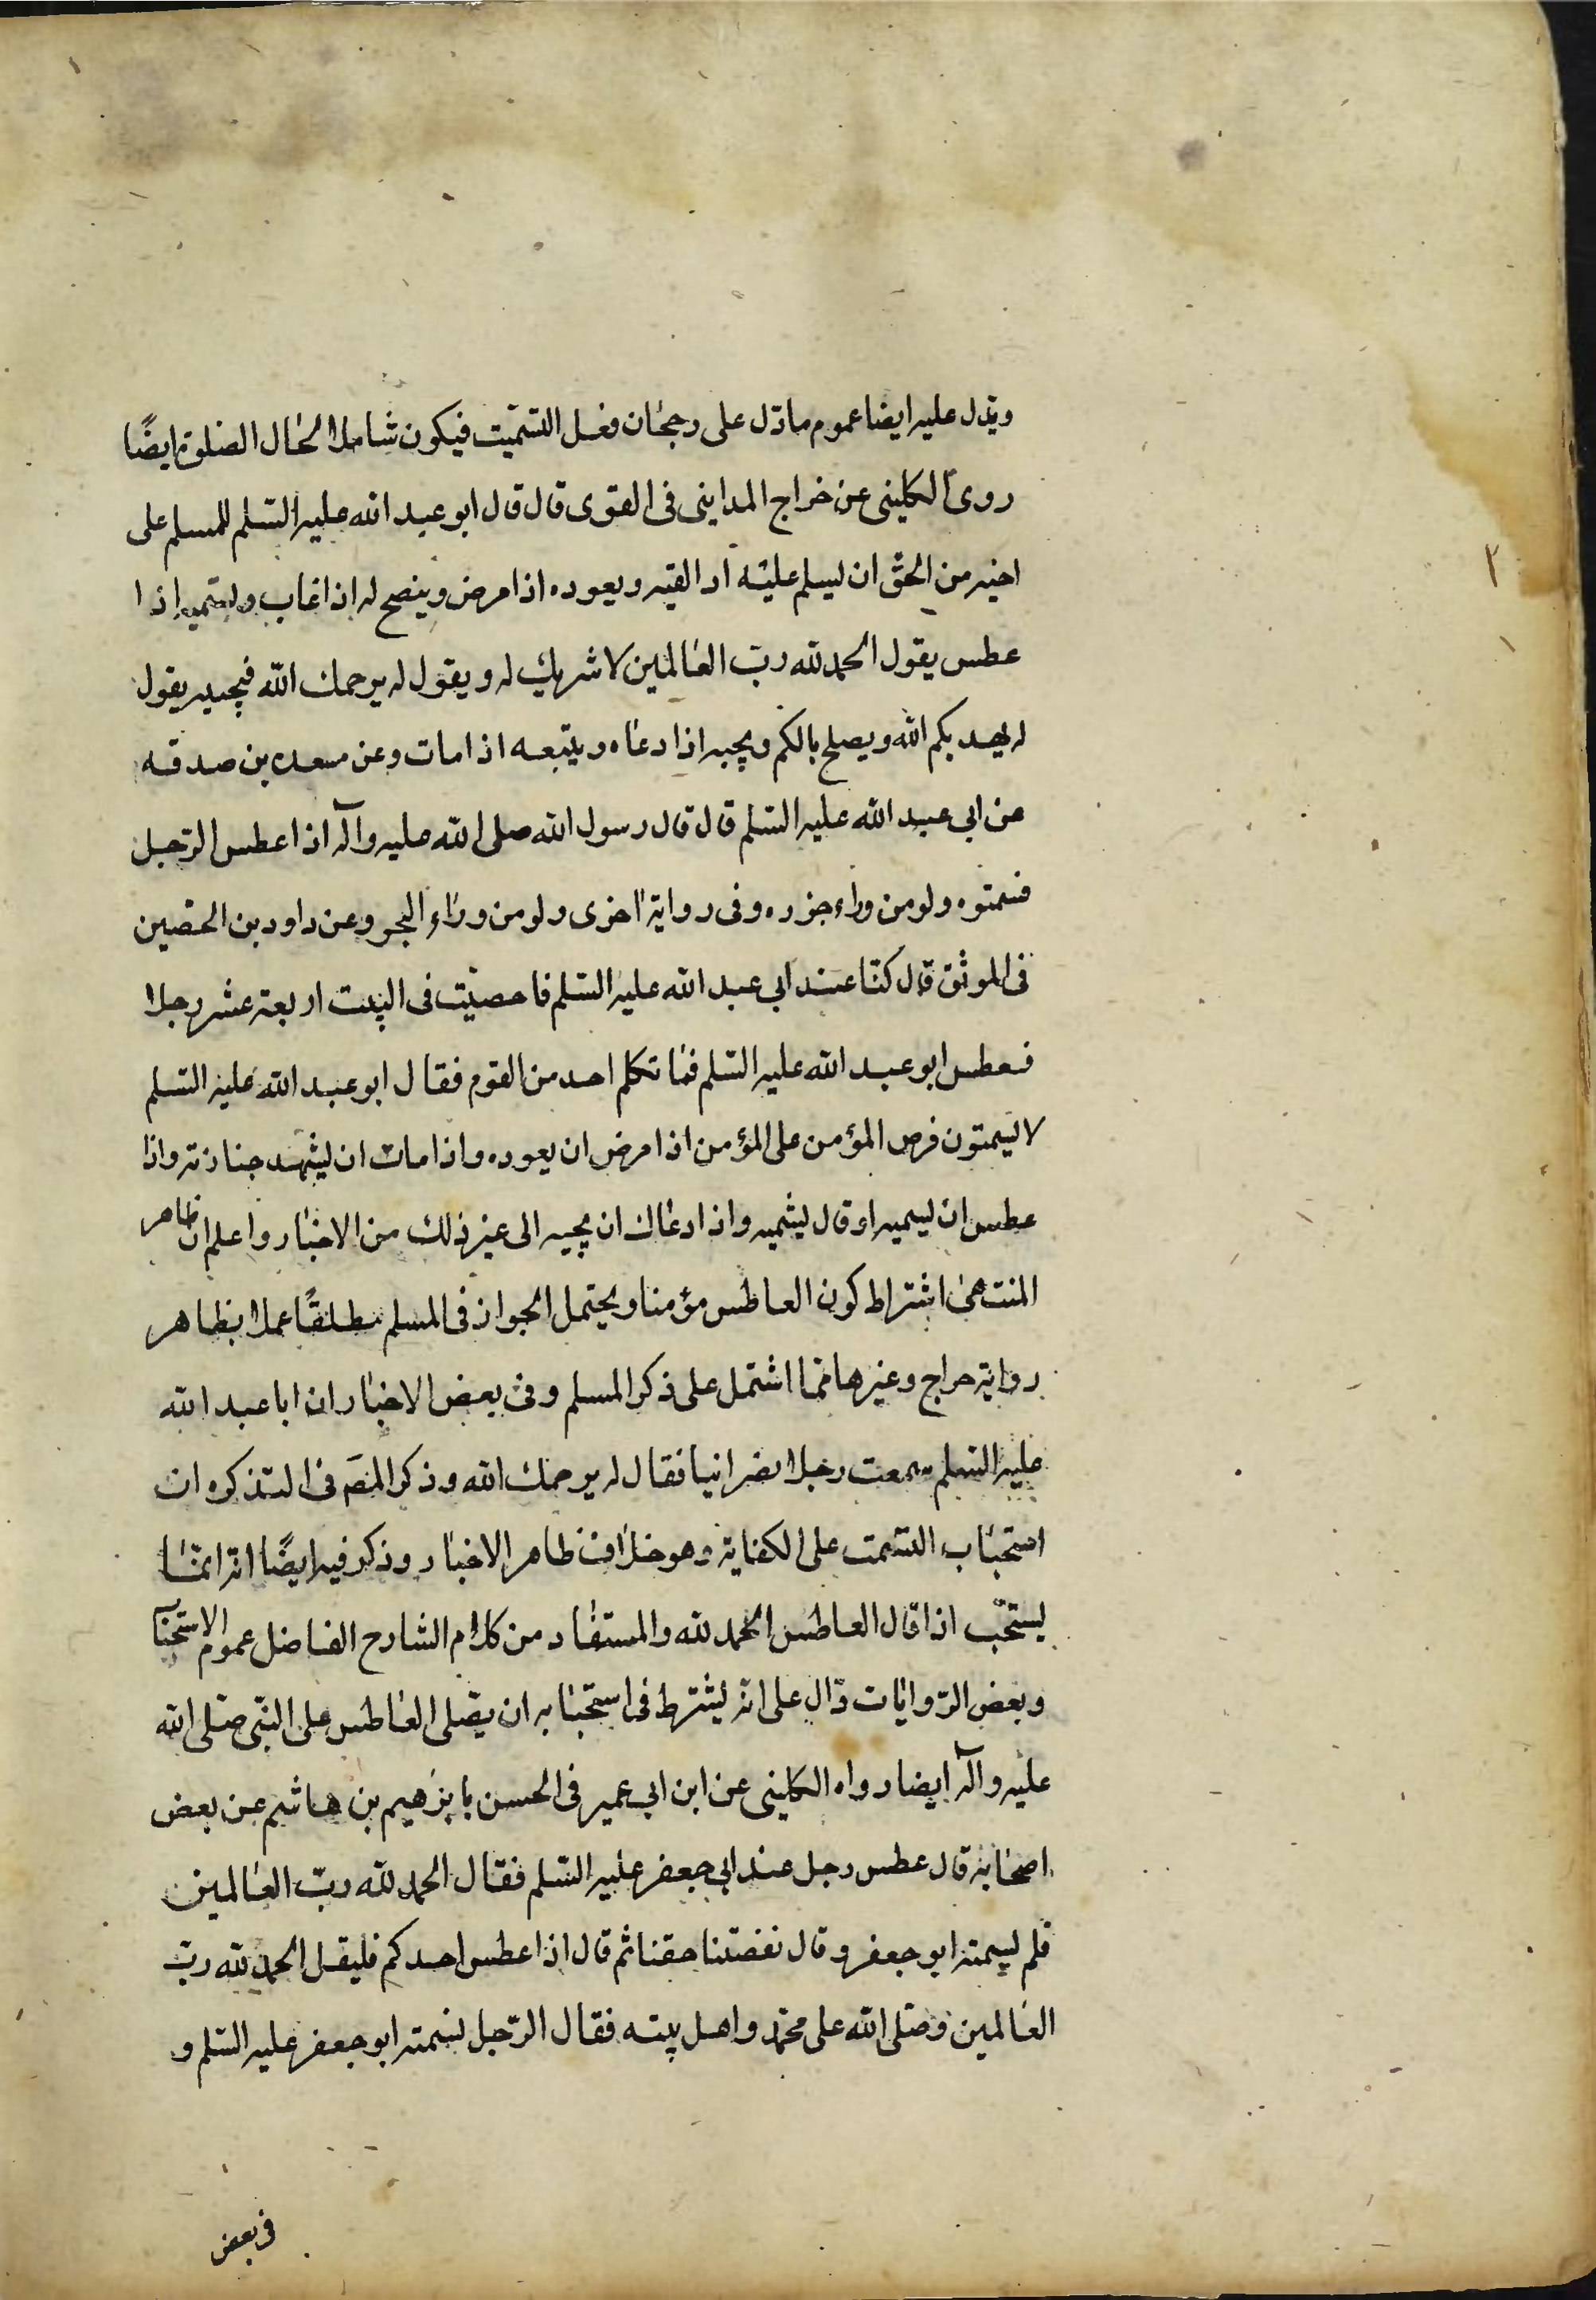 ويدل عليه ايضا عموم ما دل على رجحان فعل التسميت فيكون شاملا لحال الصلوة ايضًا
روى الكليني عن خراج المدايني في القوى قال قال ابو عبد الله عليه السلم للمسلم على
اخيه من الحق ان يسلم عليه اذا لقيه ويعوده اذا مرض وينصح له اذا غاب ويسمته اذا
عطس يقول الحمد لله رب العالمين لا شريك له ويقول له يرحمك الله فيجيبه يقول
له يهديكم الله ويصلح بالكم ويجيبه اذا دعاه ويتبعه اذا مات وعن مسعده بن صدقه
عن ابي عبد الله عليه السلم قال قال رسول الله صلى الله عليه وآله اذا عطس الرجل
فسمتوه ولو من وراء جزره وفي رواية اخرى ولو من وراء البحر وعن داود بن الحصين
في الموثق قال كنا عند ابي عبد الله عليه السلم فاحصيت في البيت اربعة عشر رجلا
فعطس ابو عبد الله عليه السلم فما تكلم احد من القوم فقال ابو عبد الله عليه السلم
لا تسمتون فرض المؤمن على المؤمن اذا مرض ان يعوده واذا مات ان يشهد جنازته واذا
عطس ان يسمته او قال يشمته واذا دعاك ان يجيبه الى غير ذلك من الاخبار واعلم ان ظاهر
المنتهى اشتراط كون العاطس مؤمنا ويحتمل الجواز في المسلم مطلقًا عملا بظاهر
رواية جراج وغيرها مما اشتمل على ذكر المسلم وفي بعض الاخبار ان ابا عبد الله
عليه السلم سمعت رجلا نصرانيا فقال له يرحمك الله وذكر المص في التذكره ان
استحباب التسمت على الكفاية وهو خلاف ظاهر الاخبار وذكر فيه ايضًا انه انما
يستحب اذا قال العاطس الحمد لله والمستفاد من كلام الشارح الفاضل عموم الاستحباب
وبعض الروايات دال على انه يشترط في استحبابه ان يصلى العاطس على النبي صلى الله
عليه وآله ايضا رواه الكليني عن ابن ابي عمير في الحسن بابرهيم بن هاشم عن بعض
اصحابه قال عطس رجل عند ابي جعفر عليه السلم فقال الحمد لله رب العالمين
فلم يسمته ابو جعفر وقال نقصتنا حقنا ثم قال اذا عطس احدكم فليقل الحمد لله رب
العالمين وصلى الله على محمد واهل بيته فقال الرجل فسمته ابو جعفر عليه السلم و
في بعض
٢